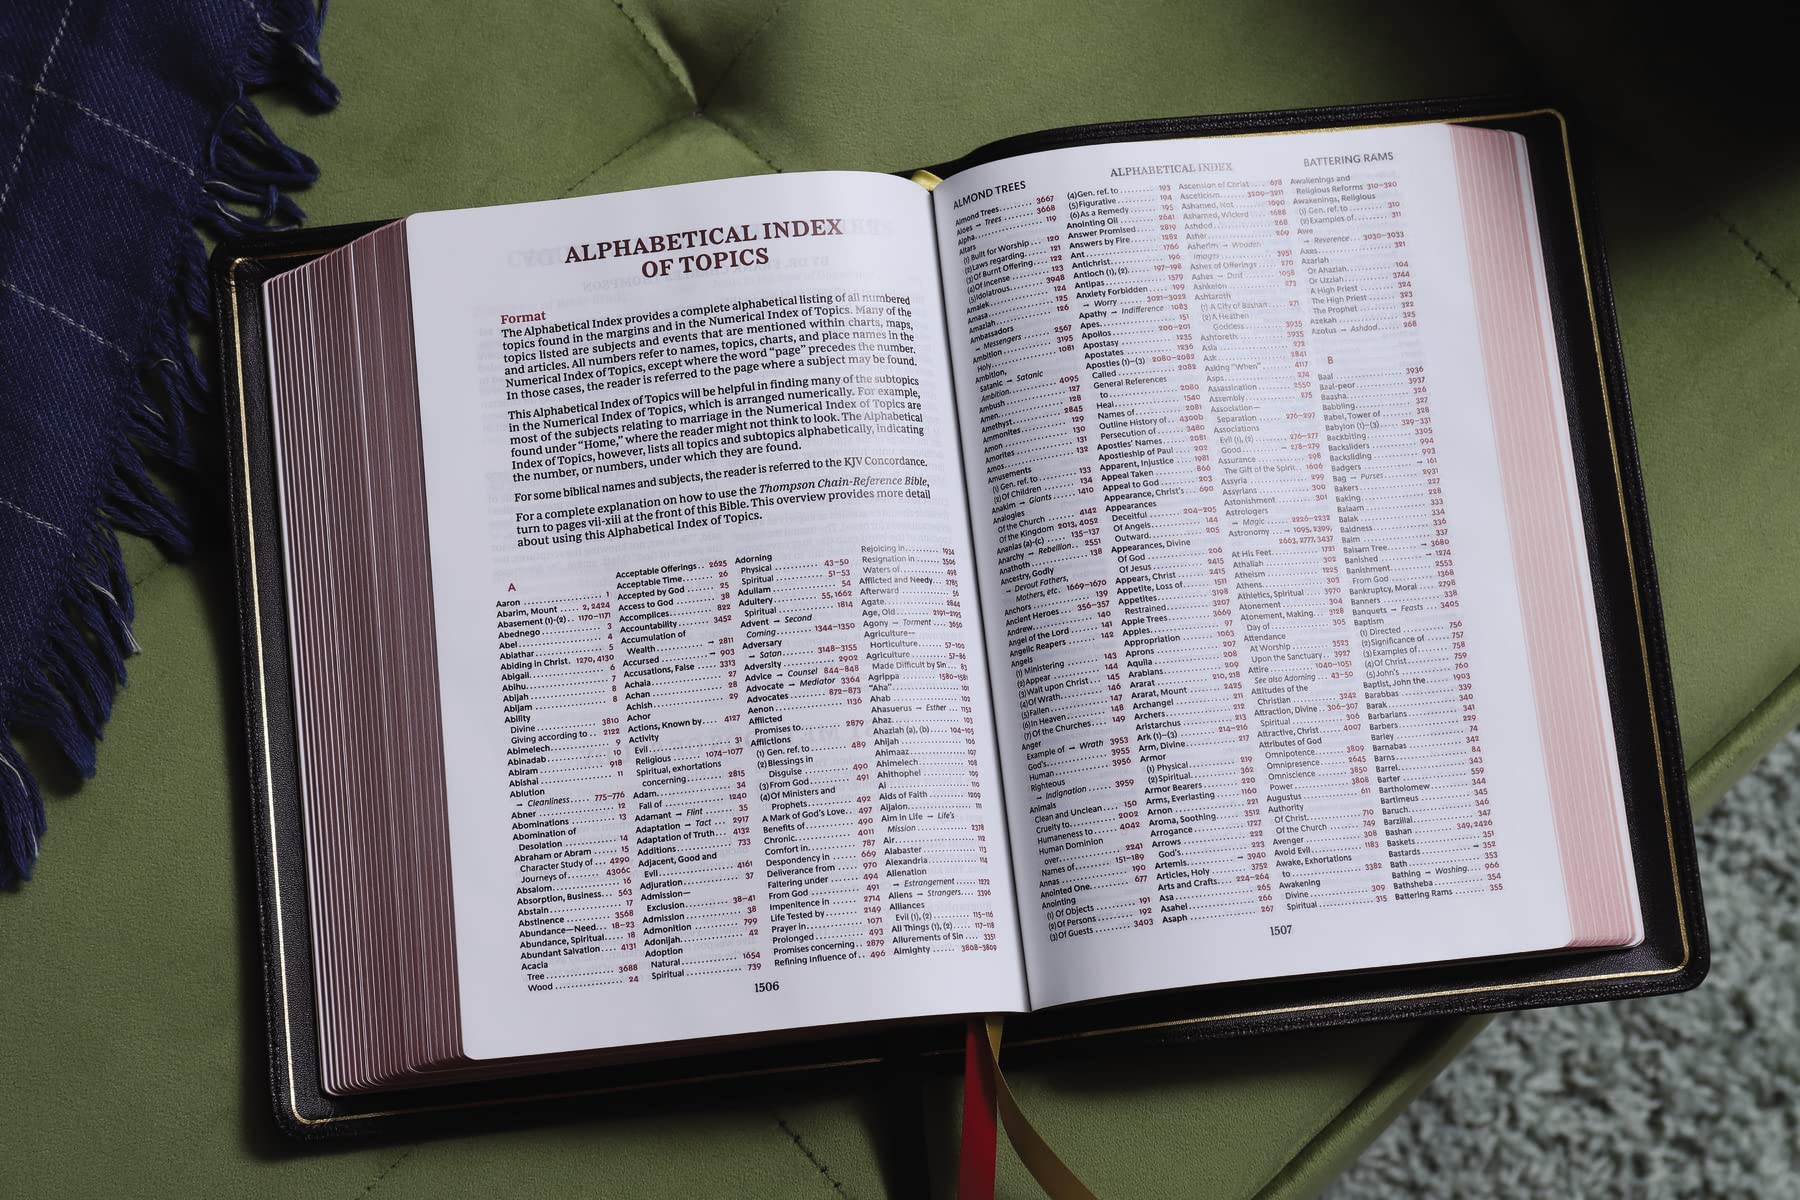 ALPHABETICAL INDEX
OF TOPICS
Format
The Alphabetical Index provides a complete alphabetical listing of all numbered
topics found in the margins and in the Numerical Index of Topics. Many of the
topics listed are subjects and events that are mentioned within charts, maps,
and articles. All numbers refer to names, topics, charts, and place names in the
Numerical Index of Topics, except where the word “page” precedes the number.
In those cases, the reader is referred to the page where a subject may be found.
This Alphabetical Index of Topics will be helpful in finding many of the subtopics
in the Numerical Index of Topics, which is arranged numerically. For example,
most of the subjects relating to marriage in the Numerical Index of Topics are
found under “Home,” where the reader might not think to look. The Alphabetical
Index of Topics, however, lists all topics and subtopics alphabetically, indicating
the number, or numbers, under which they are found.
For some biblical names and subjects, the reader is referred to the KJV Concordance.
For a complete explanation on how to use the Thompson Chain-Reference Bible,
turn to pages vii-xiii at the front of this Bible. This overview provides more detail
about using this Alphabetical Index of Topics.
A
Aaron 1
Abarim, Mount 2, 2424
Abasement (1)-(2) 1170-1171
Abednego 3
Abel 4
Abiathar 5
Abiding in Christ 1270, 4130
Abigail 6
Abihu 7
Abijah 8
Abijam 8
Ability
Divine 3810
Giving according to 2122
Abimelech 9
Abinadab 10
Abiram 918
Abishai 11
Ablution
→ Cleanliness 775-776
Abner 12
Abominations 13
Abomination of
Desolation 14
Abraham or Abram 15
Character Study of 4290
Journeys of 4306c
Absalom 16
Absorption, Business 563
Abstain 17
Abstinence 3568
Abundance—Need 18-23
Abundance, Spiritual 18
Abundant Salvation 4131
Acacia
Tree 3688
Wood 24
Acceptable Offerings 2625
Acceptable Time 26
Accepted by God 25
Access to God 38
Accomplices 822
Accountability 3452
Accumulation of
Wealth → 2811
Accursed → 903
Accusations, False 3313
Achala 27
Achan 28
Achish 29
Achor
Actions, Known by 4127
Activity
Evil 31
Religious 1074-1077
Spiritual, exhortations
concerning 2815
Adam 34
Fall of 1240
Adamant → Flint 35
Adaptation → Tact 2917
Adaptation of Truth 4132
Additions 733
Adjacent, Good and
Evil 4161
Adjuration 37
Admission—
Exclusion 38-41
Admission 38
Admonition 799
Adonijah 42
Adoption
Natural 1654
Spiritual 739
Adorning
Physical 43-50
Spiritual 51-53
Adullam 54
Adultery 55, 1662
Spiritual 1814
Advent → Second
Coming 1344-1350
Adversary
→ Satan 3148-3155
Adversity 2902
Advice → Counsel 844-848
Advocate → Mediator 3364
Advocates 872-873
Aenon 1136
Afflicted
Promises to 2879
Afflictions
(1) Gen. ref. to 489
(2) Blessings in
Disguise 490
(3) From God 491
(4) Of Ministers and
Prophets 492
A Mark of God's Love 497
Benefits of 490
Chronic 4011
Comfort in 787
Despondency in 669
Deliverance from 970
Faltering under 494
From God 491
Impenitence in 2714
Life Tested by 2149
Prayer in 1071
Prolonged 493
Promises concerning 2879
Refining Influence of 496
Rejoicing in 1934
Resignation in 3506
Waters of 498
Afflicted and Needy 2785
Afterward 56
Agate 2844
Age, Old 2191-2195
Agony → Torment 3650
Agriculture—
Horticulture 57-100
Agriculture 57-86
Made Difficult by Sin 83
Agrippa 1580-1581
"Aha" 101
Ahab 101
Ahasuerus → Esther 1151
Ahaz 103
Ahaziah (a), (b) 104-105
Ahijah 106
Ahimaaz 107
Ahimelech 108
Ahithophel 109
Ai 110
Aids of Faith 1209
Aijalon 111
Aim in Life → Life's
Mission 2378
Air 112
Alabaster 113
Alexandria 114
Alienation
→ Estrangement 1272
Aliens → Strangers 3396
Alliances
Evil (1), (2) 115-116
All Things (1), (2) 117-118
Allurements of Sin 3351
Almighty 3808-3809
1506
ALMOND TREES
ALPHABETICAL INDEX
BATTERING RAMS
Almond Trees 3667
Aloes → Trees 3668
Alpha 119
Altars
(1) Built for Worship 120
(2) Laws regarding 121
(3) Of Burnt Offering 122
(4) Of Incense 123
(5) Idolatrous 3948
Amalek 124
Amasa 125
Amaziah 126
Ambassadors
→ Messengers 2567
Ambition 3195
Holy 1081
Ambition,
Satanic → Satanic
Ambition 4095
Ambush 127
Amen 2845
Amethyst 129
Ammonites 130
Amon 131
Amorites 132
Amos
Amusements 133
(1) Gen. ref. to 134
(2) Of Children
Anakim → Giants 1410
Analogies
Of the Church 4142
Of the Kingdom 2013, 4052
Ananias (a)-(c) 135-137
Anarchy → Rebellion 2551
Anathoth 138
Ancestry, Godly
→ Devout Fathers,
Mothers, etc. 1669-1670
Anchors 139
Ancient Heroes 356-357
Andrew 140
Angel of the Lord 141
Angelic Reapers 142
Angels
(1) Ministering 143
(2) Appear 144
(3) Wait upon Christ 145
(4) Of Wrath 146
(5) Fallen 147
(6) In Heaven 148
(7) Of the Churches 149
Anger
Example of → Wrath 3953
God's 3955
Human 3956
Righteous
→ Indignation 3959
Animals
Clean and Unclean 150
Cruelty to 2002
Humaneness to 4042
Human Dominion
over 2241
Names of 151-189
Annas 190
Anointed One 677
Anointing
(1) Of Objects 191
(2) Of Persons 192
(3) Of Guests 3403
(4) Gen. ref. to 193
(5) Figurative 194
(6) As a Remedy 195
Anointing Oil 2641
Answer Promised 2819
Answers by Fire 1282
Ant 1766
Antichrist 196
Antioch (1), (2) 197-198
Antipas 179
Anxiety Forbidden 199
→ Worry 3021-3022
Apathy → Indifference 1083
Apes 151
Apollos 200-201
Apostasy 1235
Apostates 1236
Apostles (1)-(3) 2080-2082
Called 2082
General References
to 2080
Heal 1540
Names of 2081
Outline History of 4300b
Persecution of 3480
Apostles' Names 2081
Apostleship of Paul 202
Apparent, Injustice 1981
Appeal Taken 866
Appeal to God 203
Appearance, Christ's 690
Appearances
Deceitful 204-205
Of Angels 144
Outward 205
Appearances, Divine
Of God 206
Of Jesus 2415
Appears, Christ 2415
Appetite, Loss of 1511
Appetites 3198
Restrained 3207
Apple Trees 3669
Apples 97
Appropriation 1063
Aprons 207
Aquila 208
Arabians 209
Ararat 210, 218
Ararat, Mount 2425
Archangel 211
Archers 212
Aristarchus 213
Ark (1)-(3) 214-216
Arm, Divine 217
Armor
(1) Physical 219
(2) Spiritual 362
Armor Bearers 220
Arms, Everlasting 1160
Arnon 221
Aroma, Soothing 3512
Arrogance 1727
Arrows 222
God's 223
Artemis → 3940
Articles, Holy 3752
Arts and Crafts 224-264
Asa 265
Asahel 266
Asaph 267
Ascension of Christ 678
Asceticism 3209-3211
Ashamed, Not 1690
Ashamed, Wicked 1688
Ashdod 268
Asher 269
Asherim → Wooden
Images 3951
Ashes of Offerings 270
Ashes → Dust 1058
Ashkelon 273
Ashtaroth
(1) A City of Bashan 271
(2) A Heathen
Goddess 3935
Ashtoreth 3935
Asia 272
Ask 2841
Asking "When" 4117
Asps 274
Assassination 2550
Assembly 275
Association—
Separation 276-297
Associations
Evil (1), (2) 276-277
Good → 278-279
Assurance 298
The Gift of the Spirit 1606
Assyria 299
Assyrians 300
Astonishment 301
Astrologers
→ Magic 2226-2232
Astronomy → 1095, 2399,
2663, 2777, 3437
At His Feet 1721
Athaliah 302
Atheism 1225
Athens 303
Athletics, Spiritual 3970
Atonement 304
Atonement, Making 3128
Day of 305
Attendance
At Worship 3523
Upon the Sanctuary 3927
Attire 1040-1051
See also Adorning 43-50
Attitudes of the
Christian 3242
Attraction, Divine 306-307
Spiritual 306
Attractive, Christ 4007
Attributes of God
Omnipotence 3809
Omnipresence 2645
Omniscience 3850
Power 3808
Augustus 611
Authority
Of Christ 710
Of the Church 749
Avenger 308
Avoid Evil 1183
Awake, Exhortations
to 3382
Awakening
Divine 309
Spiritual 315
Awakenings and
Religious Reforms 310-320
Awakenings, Religious
(1) Gen. ref. to 310
(2) Examples of 311
Awe
→ Reverence 3030-3033
Axes 321
Azariah
Or Ahaziah 104
Or Uzziah 3744
A High Priest 324
The High Priest 323
The Prophet 322
Azekah 325
Azotus → Ashdod 268
B
Baal 3936
Baal-peor 3937
Baasha 326
Babbling 327
Babel, Tower of 328
Babylon (1)-(3) 329-331
Backbiting 3305
Backsliders 994
Backsliding 993
Badgers → 161
Bag → Purses 2931
Bakers 227
Baking 228
Balaam 333
Balak 334
Baldness 336
Balm 337
Balsam Tree → 3680
Banishment → 1274
Banishment 2553
From God 1368
Bankruptcy, Moral 2798
Banners 338
Banquets → Feasts 3405
Baptism
(1) Directed 756
(2) Significance of 757
(3) Examples of 758
(4) Of Christ 759
(5) John's 760
Baptist, John the 1903
Barabbas 339
Barak 340
Barbarians 341
Barbers 229
Barley 74
Barnabas 342
Barns 84
Barrel 343
Barter 559
Bartholomew 344
Bartimeus 345
Baruch 346
Barzillai 347
Bashan 349, 2426
Baskets 351
Bastards → 352
Bath 353
Bathing → Washing 966
Bathsheba 354
Battering Rams 355
1507